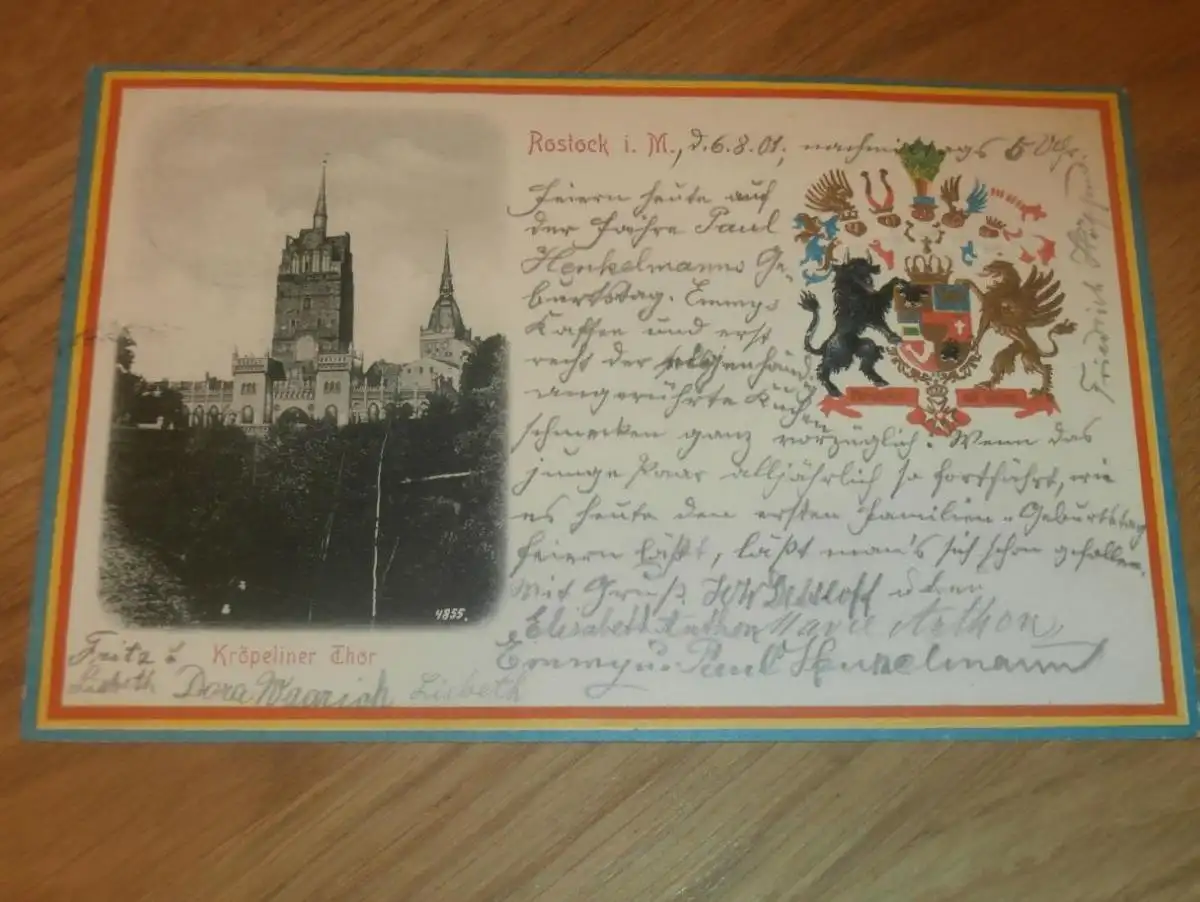 Rostock i. M., d. 6.8.01, nachmittags 5 Uhr.
Feiern heute auf
der Fähre Paul
Henkelmanns Ge-
burtstag. Emmys
Kaffee und erst
recht der eigenhändig
angerührte Kuchen
schmecken ganz vorzüglich. Wenn das
junge Paar alljährlich so fortfährt, wie
es heute den ersten Familien-Geburtstag
feiern läßt, läßt man's sich schon gefallen.
Mit Gruß
Elisabeth Anthon Marie Anthon,
Emmy u. Paul Henkelmann
Friedrich
4855.
Kröpeliner Thor
Fritz u
Lisbeth Dora Lisbeth